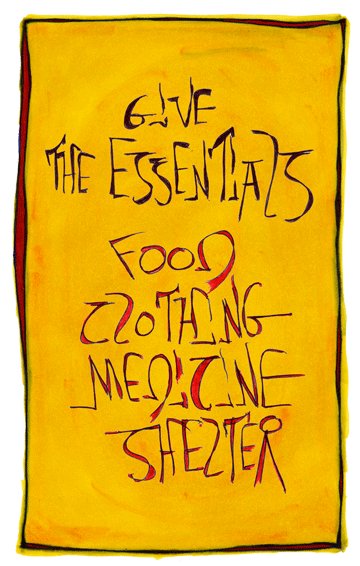 GIVE
THE ESSENTIALS
FOOD
CLOTHING
MEDICINE
SHELTER